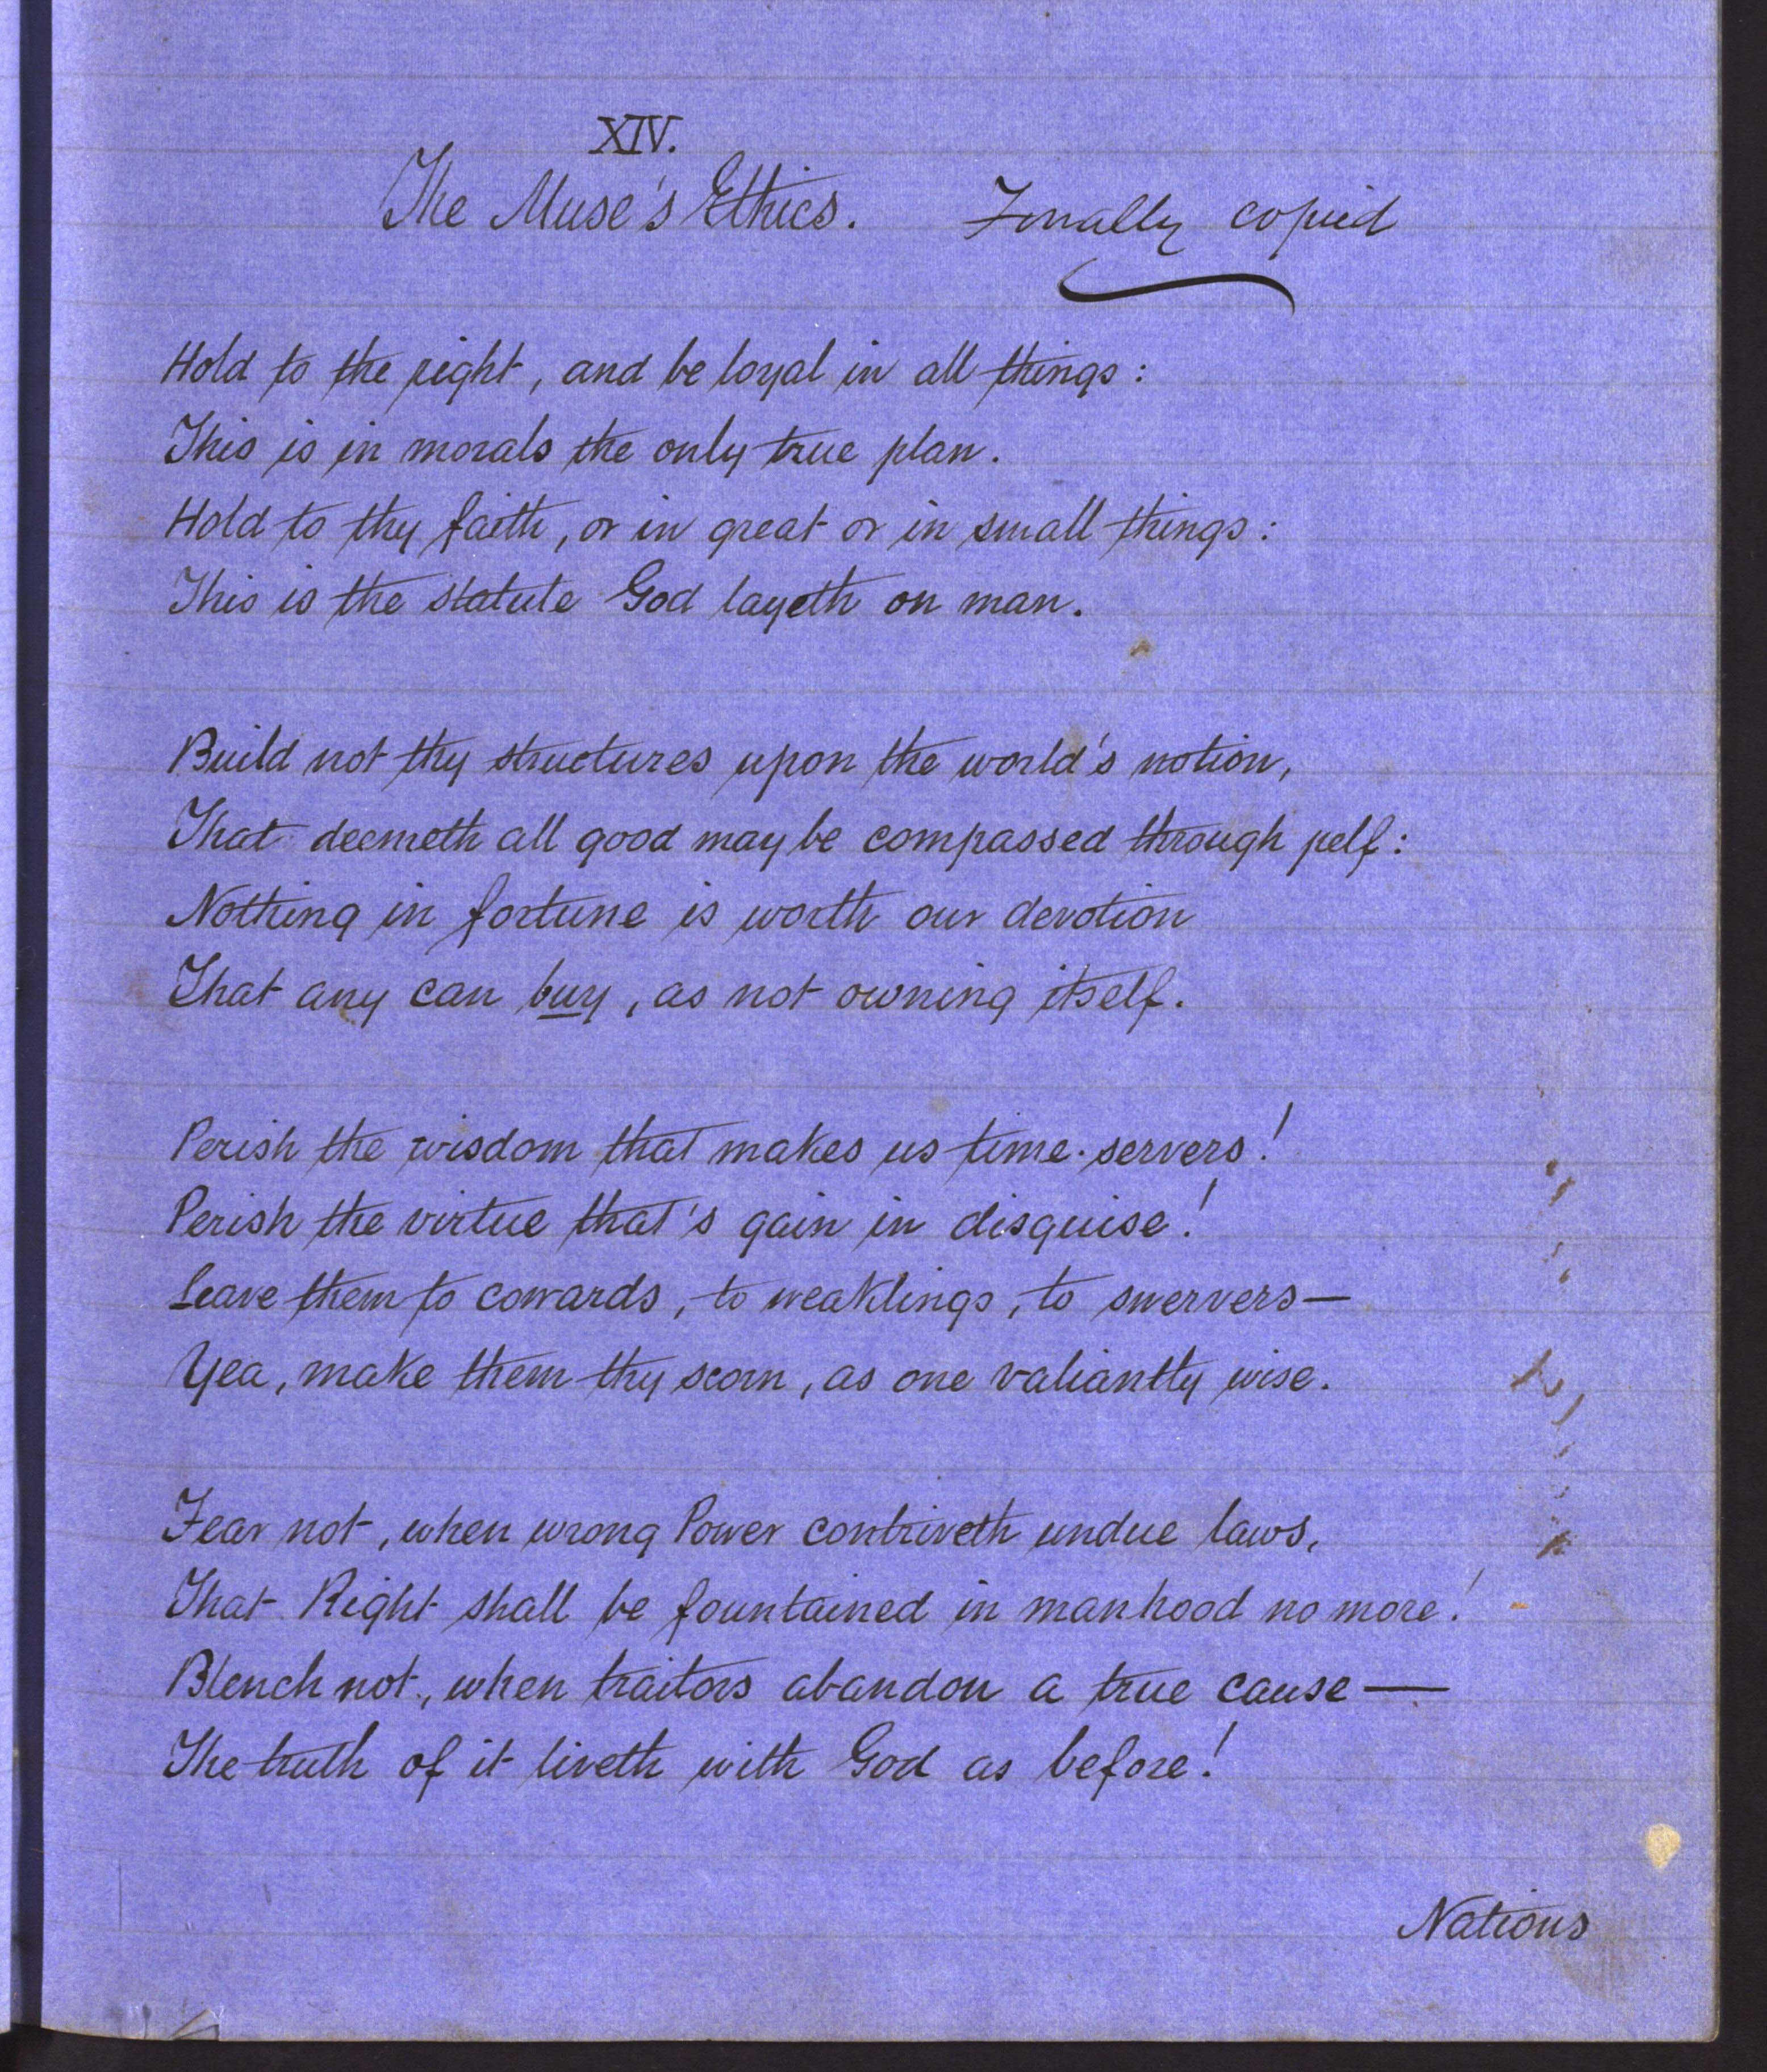 XIV.
The Muse's Ethics. Finally copied
Hold to the right, and be loyal in all things:
This is in morals the only true plan.
Hold to thy faith, or in great or in small things:
This is the statute God layeth on man.
Build not thy structures upon the world's notion,
That deemeth all good may be compassed through pelf:
Nothing in fortune is worth our devotion
That any can buy, as not owning itself.
Perish the wisdom that makes us time-servers!
Perish the virtue that's gain in disguise!
Leave them to cowards, to weaklings, to swervers—
Yea, make them thy scorn, as one valiantly wise.
Fear not, when wrong Power contriveth undue laws,
That Right shall be fountained in manhood no more!
Blench not, when traitors abandon a true cause—
The truth of it liveth with God as before!
Nations